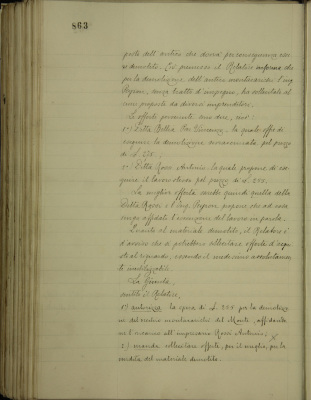 863
parte dell'antico che dovrà per conseguenza essere
demolito. Ciò premesso il Relatore informa che
per la demolizione dell'antico menzionato l'ing.
Pegrini, senza tratto d'impegno, ha sollecitato al
cune proposte da diversi imprenditori.
Le offerte pervenute sono due, cioè:
1°) Ditta Bellia Vincenzo, la quale offre di
eseguire la demolizione pel prezzo
di £. 275.;
2°) Ditta Rossi Antonio la quale propone di ese
guire il lavoro stesso pel prezzo di £. 225.
La miglior offerta risulta quindi quella della
Ditta Rossi e l'Ing. propone che ad essa
venga affidata l'esecuzione del lavoro in parola.
Quanto al materiale demolito, il Relatore è
d'avviso che si potrebbero sollecitare offerte d'acqui
sto al riguardo, essendo il medesimo assolutamen
te inutilizzabile.
La Giunta,
sentito il Relatore,
1°) autorizza la spesa di £. 225 per la demolizio
ne del vecchio del Monte, affidando
ne l'incarico all'impresario Rossi Antonio;
2°) manda sollecitare offerte, per il meglio, per la
vendita del materiale demolito.